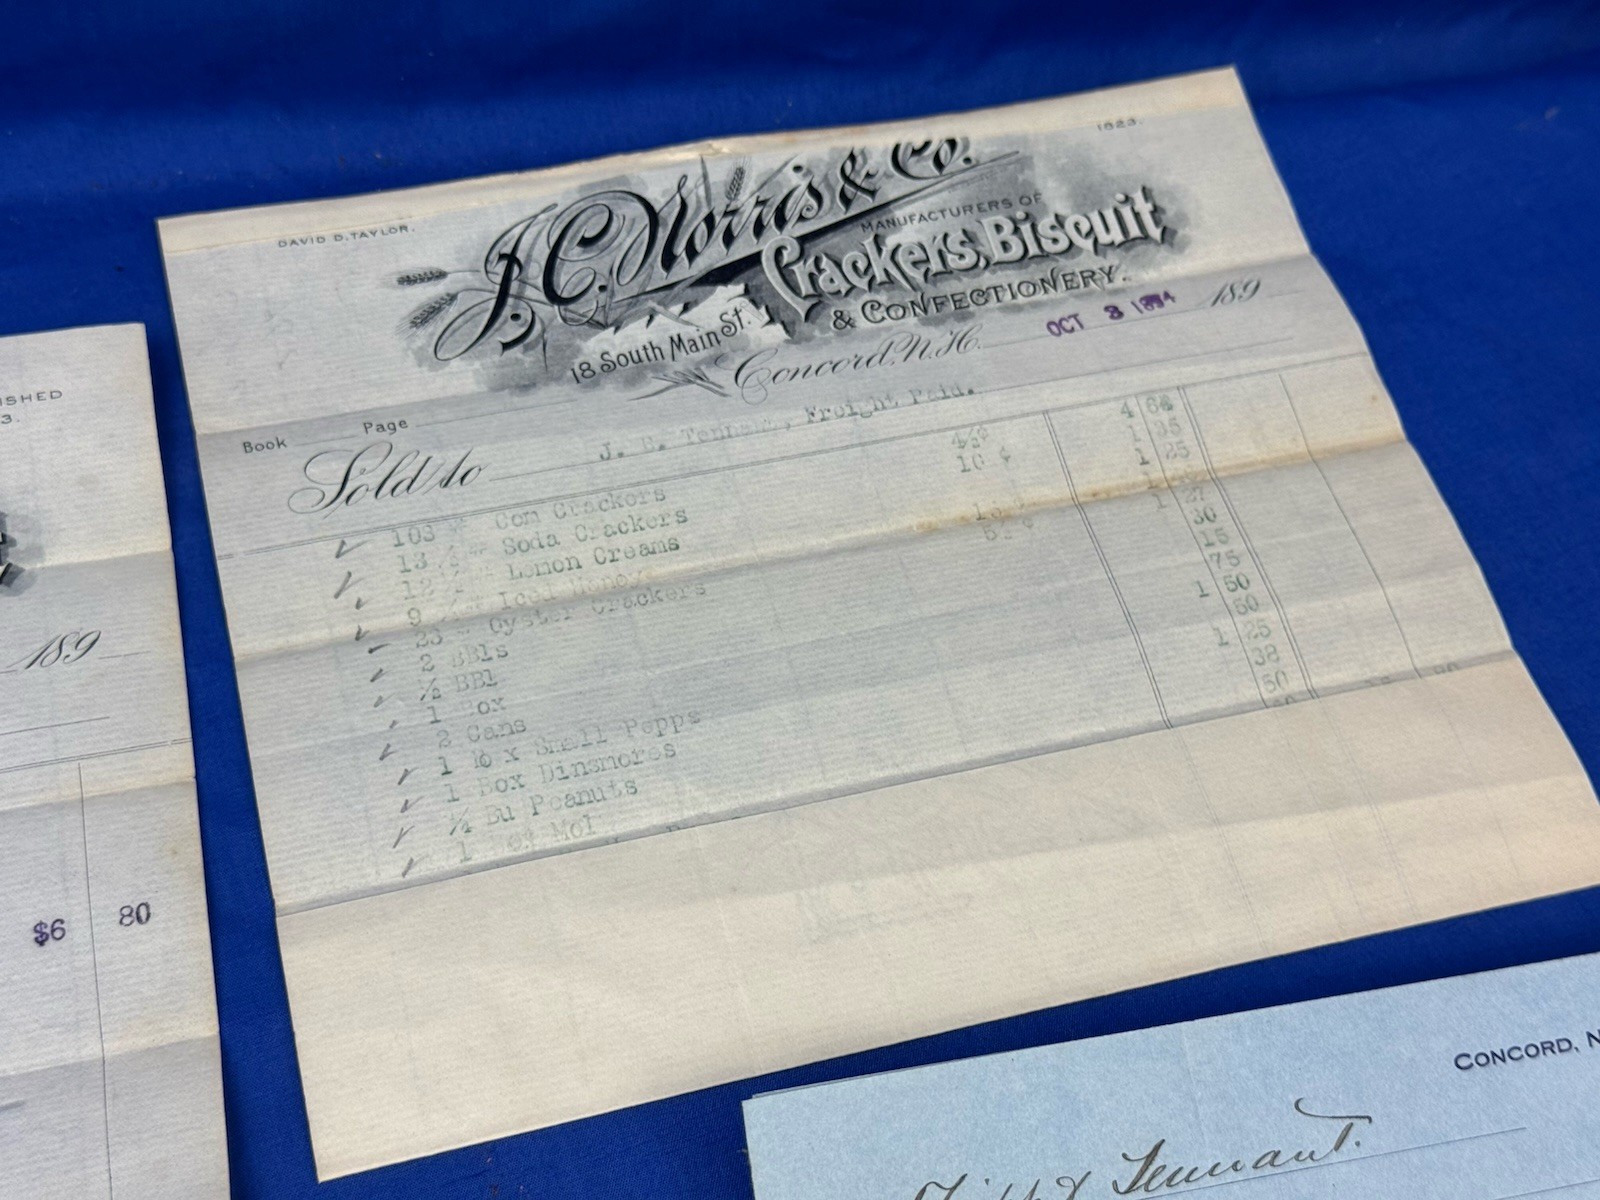 1823.
DAVID D. TAYLOR.
J. C. Norris & Co.
MANUFACTURERS OF
Crackers, Biscuit
& CONFECTIONERY.
18 South Main St.
Concord, N.H. OCT 3 1894 189
Book Page
Sold to J. E. Freight Paid.
103 Com Crackers 4½¢ 4 64
13 Soda Crackers 10 ¢ 1 35
12 Lemon Creams 1 25
9 Iced
23 Oyster Crackers 5½ ¢ 1 27
2 BBls 30
½ BBl 15
1 Box 75
2 Cans 1 50
1 Small Pepps 50
1 Box Dinsmores 1 25
¼ Bu Peanuts 38
1 Mol 50
ISHED
3.
189
$6 80
CONCORD, N
Tennant.